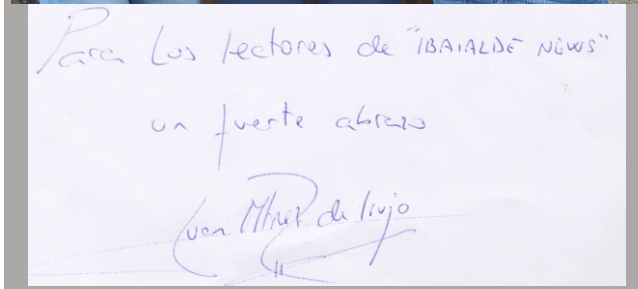 Para los lectores de "IBAIALDE NEWS"
un fuerte abrazo
Juan Mtnez. de Irujo